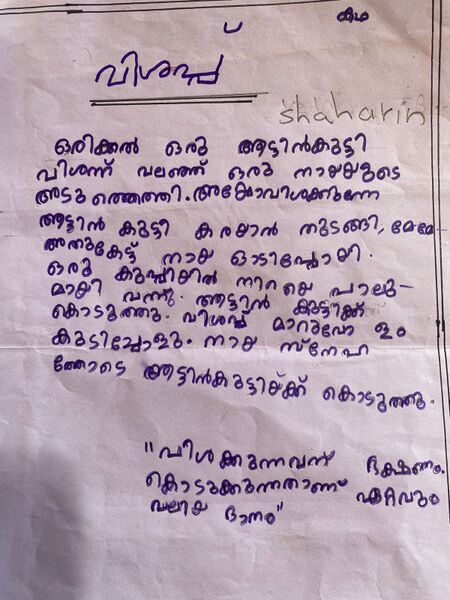 കഥ
വിശപ്പ്
shaharin
ഒരിക്കൽ ഒരു ആട്ടിൻകുട്ടി
വിശന്ന് വലഞ്ഞ് ഒരു നായയുടെ
അടുത്തെത്തി. അയ്യോവിശക്കുന്നേ
ആട്ടിൻ കുട്ടി കരയാൻ തുടങ്ങി, മേമേ
അതുകേട്ട് നായ ഓടിപ്പോയി.
ഒരു കുപ്പിയിൽ നിറയെ പാലു-
മായി വന്നു. ആട്ടിൻ കുട്ടിക്ക്
കൊടുത്തു. വിശപ്പ് മാറുവോ ളം
കുടിച്ചോളു. നായ സ്നേഹ
ത്തോടെ ആട്ടിൻകുട്ടിയ്ക്ക് കൊടുത്തു.
"വിശക്കുന്നവന് ഭക്ഷണം.
കൊടുക്കുന്നതാണ് ഏറ്റവും
വലിയ ദാനം"